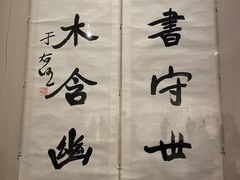 書守世
木含幽
于右任